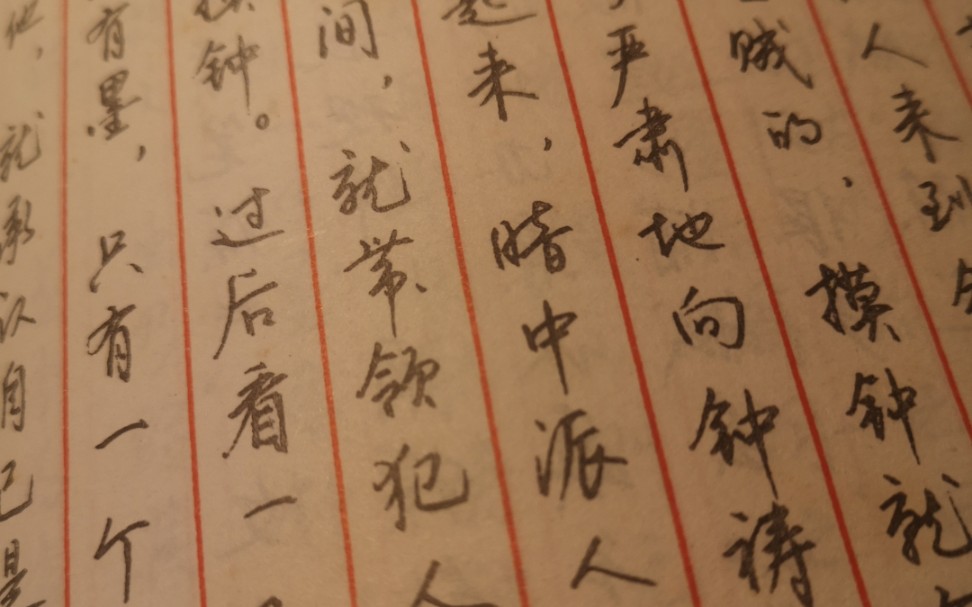 人来到
贼的，摸钟就
严肃地向钟祷
起来，暗中派人
间，就带领犯人
钟。过后看一
有墨，只有一个
他，就承认自己是